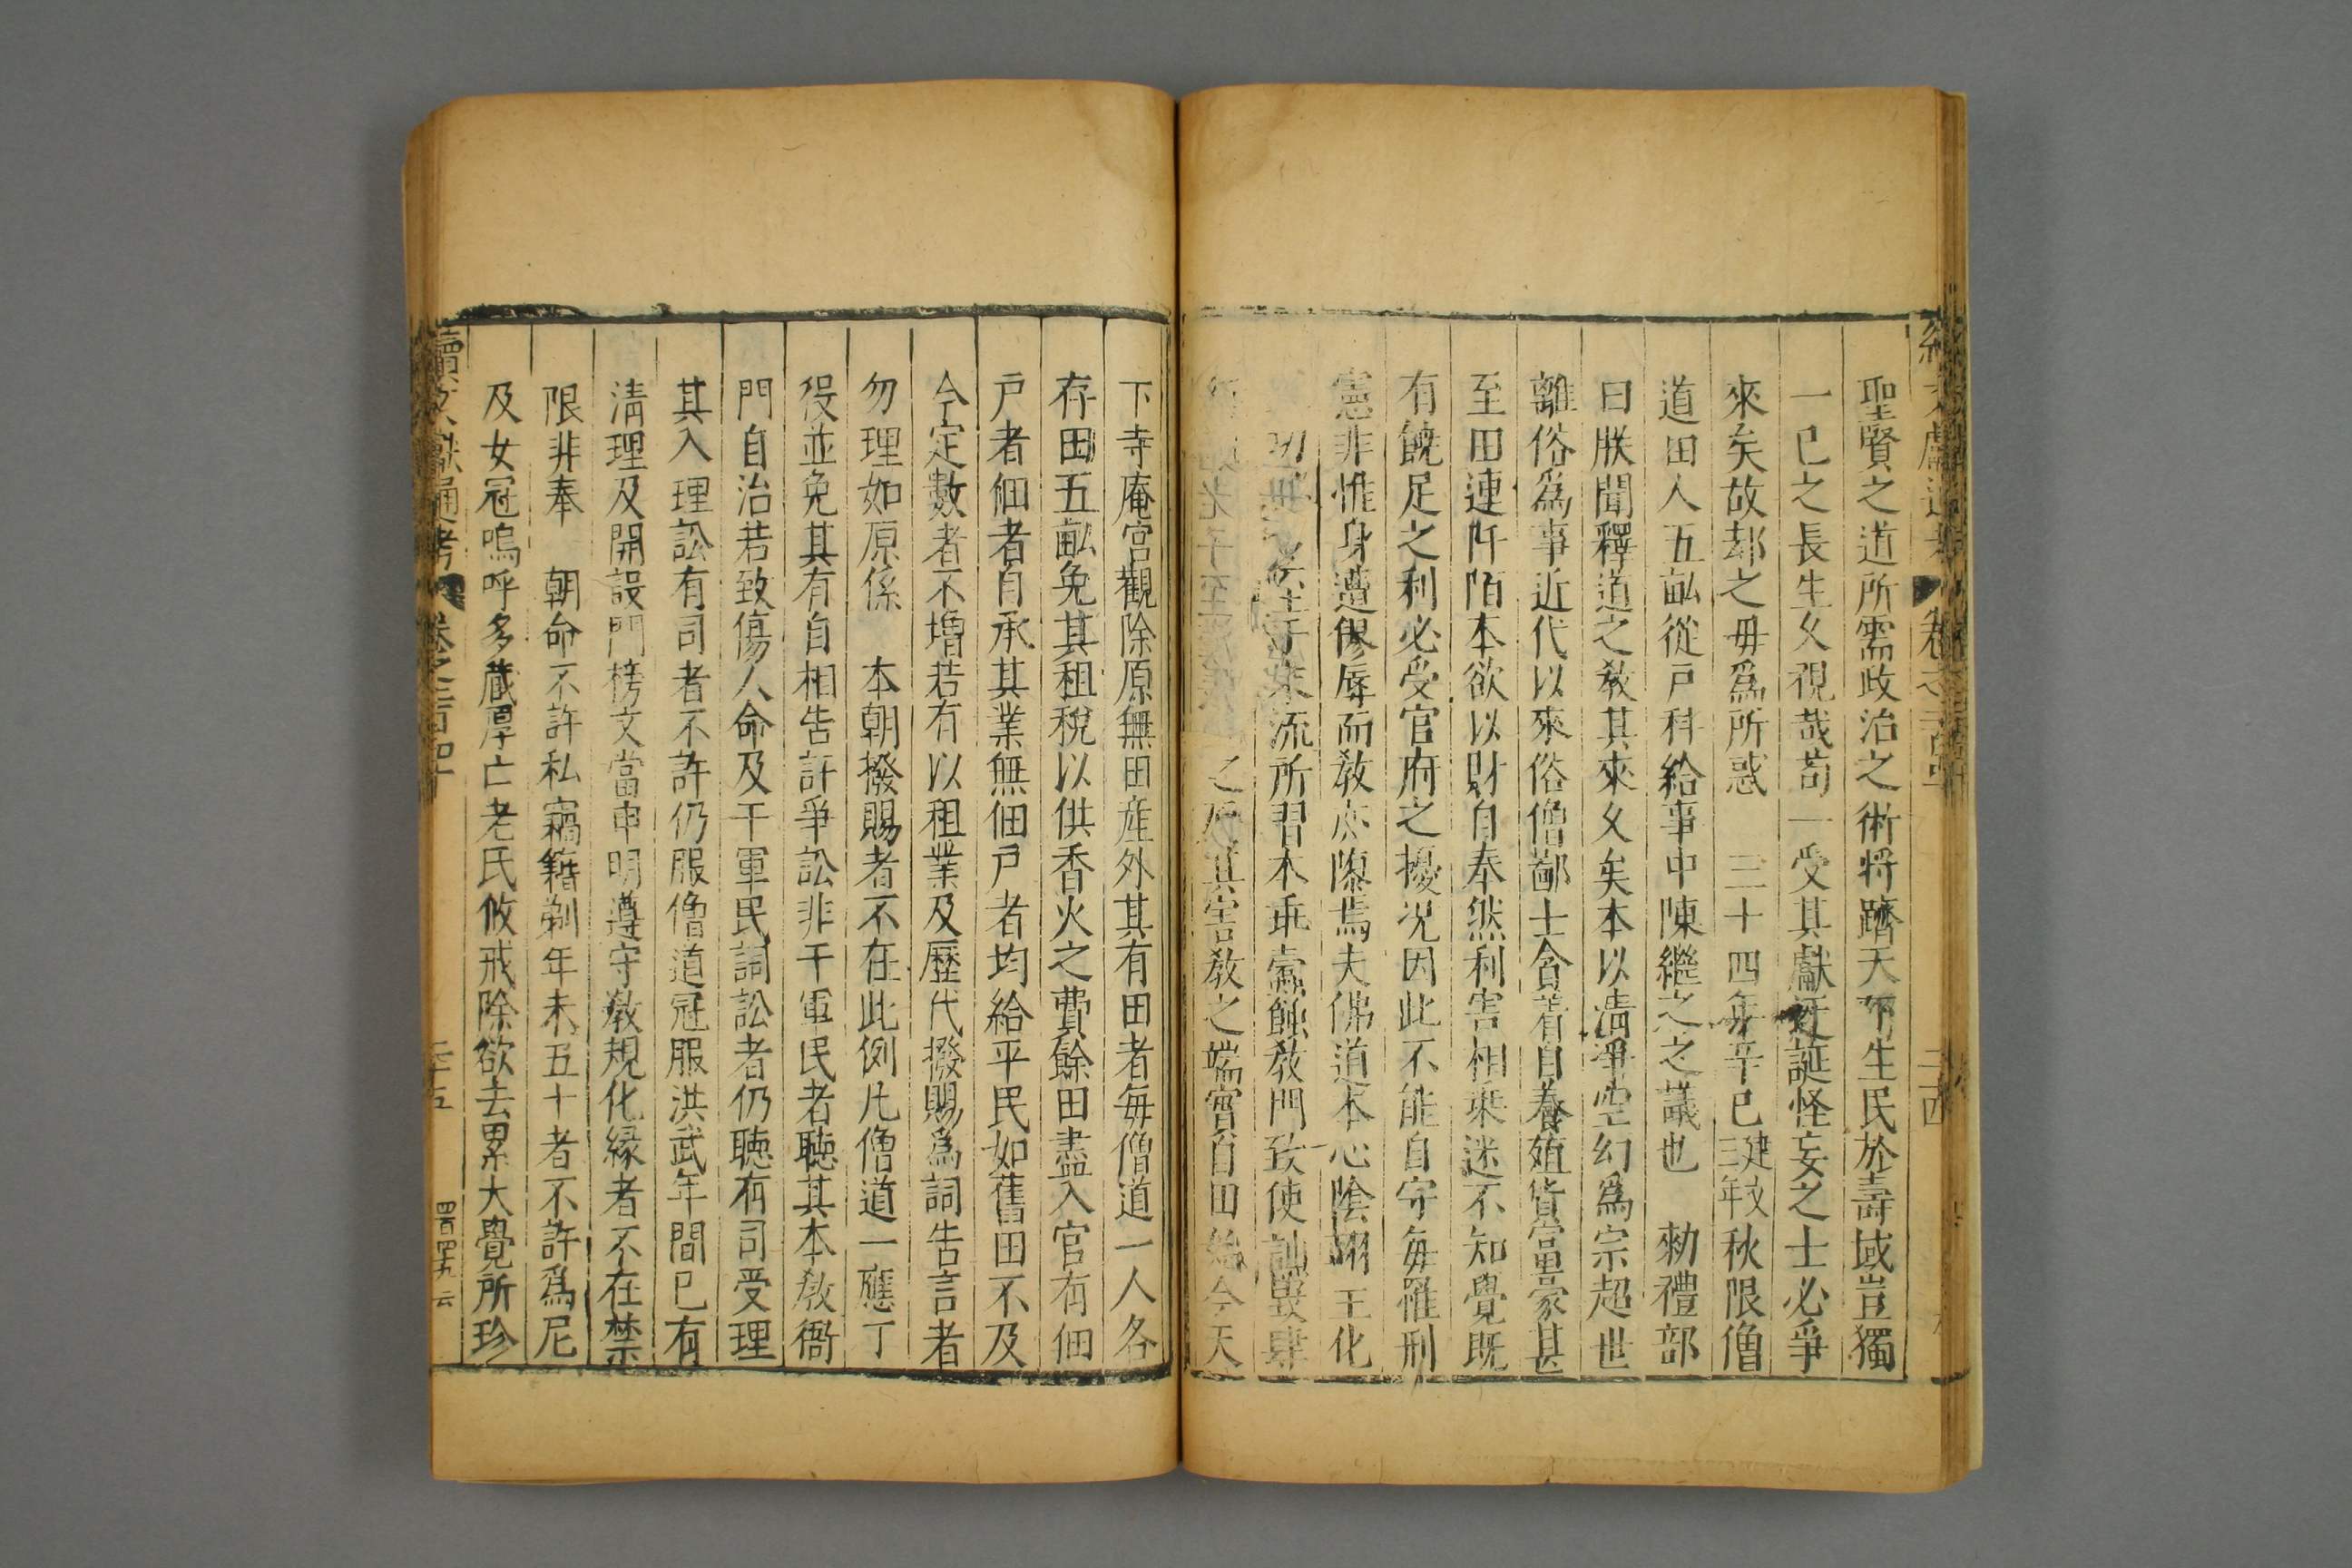 聖賢之道所需政治之術將躋天下生民於壽域豈獨
一已之長生久視哉苟一受其獻迂誕怪妄之士必爭
來矣故却之毋爲所惑　三十四年辛巳建文三年秋限僧
道田人五畝從戸科給事中陳繼之之議也　勑禮部
曰朕聞釋道之教其來久矣本以清淨空幻爲宗超世
離俗爲事近代以來俗僧鄙士貪着自養殖貨富豪甚
至田連阡陌本欲以財自奉然利害相乘迷不知覺既
有饒足之利必受官府之擾况因此不能自守每罹刑
憲非惟身遭僇辱而教亦隳焉夫佛道本心陰翊王化
流所習本乖蠧蝕教門致使訕毀肆
其害教之端實自田始今天
下寺庵宮觀除原無田産外其有田者每僧道一人各
存田五畝免其租稅以供香火之費餘田盡入官有佃
戸者佃者自承其業無佃戸者均給平民如舊田不及
今定數者不增若有以租業及歷代撥賜爲詞告言者
勿理如原係　本朝撥賜者不在此例凡僧道一應丁
役並免其有自相告訐爭訟非干軍民者聽其本教衙
門自治若致傷人命及干軍民詞訟者仍聽有司受理
其入理訟有司者不許仍服僧道冠服洪武年間已有
清理及開設門榜文當申明遵守教規化緣者不在禁
限非奉　朝命不許私竊籍剃年未五十者不許爲尼
及女冠嗚呼多藏厚亡老氏攸戒除欲去累大覺所珍
續文獻通考　卷之二百四十　二十五　四百四十九　云